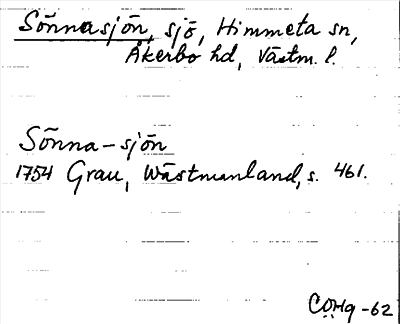 Sönnasjön, sjö, Himmeta sn,
Åkerbo hd, Västm. l.
Sönna-sjön
1754 Grau, Wästmanland, s. 461.
COHg -62